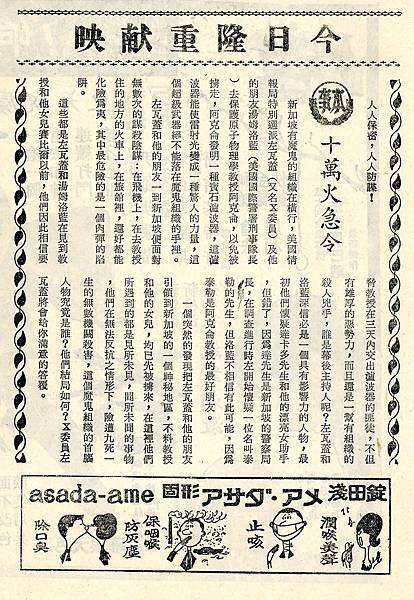 今日隆重献映
人人保密，人人防諜！
本事
十萬火急令
新加坡有魔鬼的組織在橫行，美國情
報局特別選派左瓦蓋（又名Ｘ委員）及他
的朋友湯姆洛藍（美國國際警署刑事隊長
）去保護原子物理學教授阿克侖，以免被
擄走，阿克侖發明一種寶石濾波器，這濾
波器能使雷射光變成一種驚人的力量，這
個超級武器絕不能落在魔鬼組織的手裡。
左瓦蓋和他的朋友一到新加坡便面對
無數次的謀殺陰謀：在飛機上，在去教授
住的地方的火車上，在旅館裡，還好都能
化險爲夷，其中最危險的是一個肉彈的陷
阱。
這些都是左瓦蓋和湯姆洛藍在見到教
授和他女兒賽比爾以前，他們因此相信要
脅教授在三天內交出濾波器的匪徒，不但
有雄厚的惡勢力，而且還是一幫有組織的
殺人兇手，誰是幕後主持人呢？左瓦蓋和
洛藍深信必是一個具有影響力的人物，最
初他們懷疑達卡多先生和他的漂亮女助手
，但錯了，因爲達先生是新加坡的警察局
長，在調查進行時左開始懷疑一位名叫泰
勒的先生，但洛藍不相信有此可能，因爲
泰勒是阿克侖教授的最好朋友。
一個突然的發現把左瓦蓋和他的朋友
引領到新加坡的一個神秘地區，不料教授
和他的女兒，均已先他擄來，在這裡他們
所遇到的都是見所未見，聞所未聞的事物
，他們在無法反抗之情形下，險遭九死一
生的無數機關殺害，這個魔鬼組織的首腦
人物究竟是誰？他們結局如何？Ｘ委員左
瓦蓋將會給你滿意的答覆。
asada-ame 固形アサダ・アメ 淺田錠
潤喉美聲
止咳
保咽喉
防灰塵
除口臭